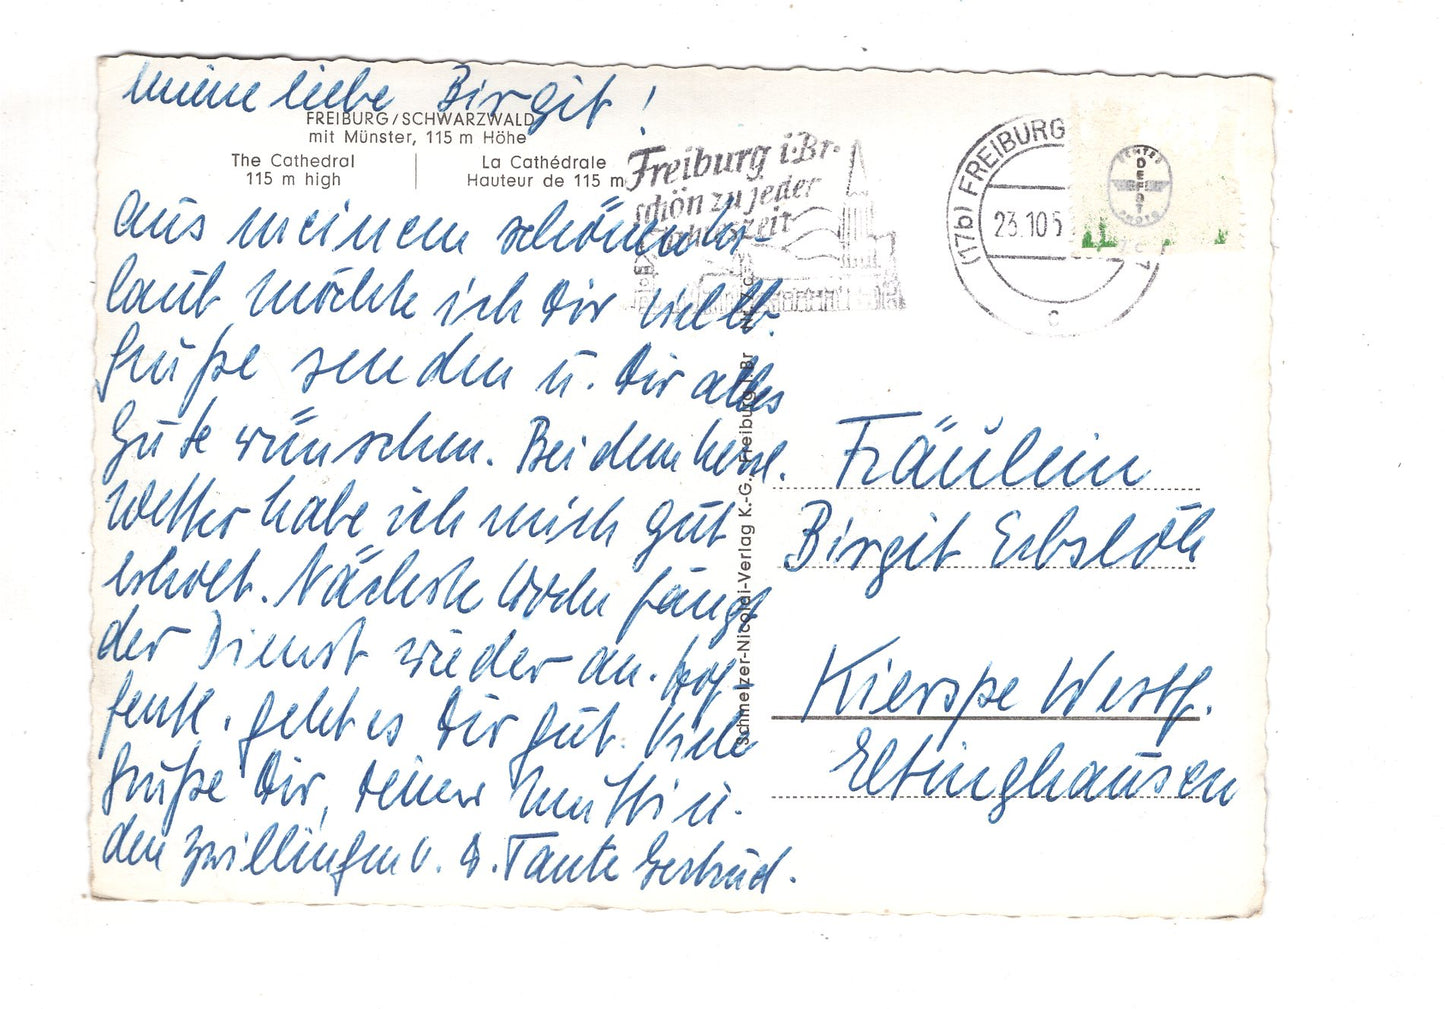 Meine liebe Birgit!
FREIBURG/SCHWARZWALD
mit Münster, 115 m Höhe
The Cathedral
115 m high
La Cathédrale
Hauteur de 115 m
aus meinem schönen Ur-
laub möchte ich Dir
Grüße senden u. Dir alles
Gute wünschen. Bei dem herrl.
Wetter habe ich mich gut
erholt. Nächste Woche fängt
der Dienst wieder an. Hof
fentl. geht es Dir gut. Viele
Grüße Dir, deiner Mutti u.
den Zwillingen v. D. Tante Gertrud.
Freiburg i. Br.
schön zu jeder
Jahreszeit
(17b) FREIBURG
23.10.5
c
DEFOT
Schmelzer-Nicolai-Verlag K.-G., Freiburg i. Br
Fräulein
Birgit Erbslöh
Kierspe Westf.
Eltinghausen